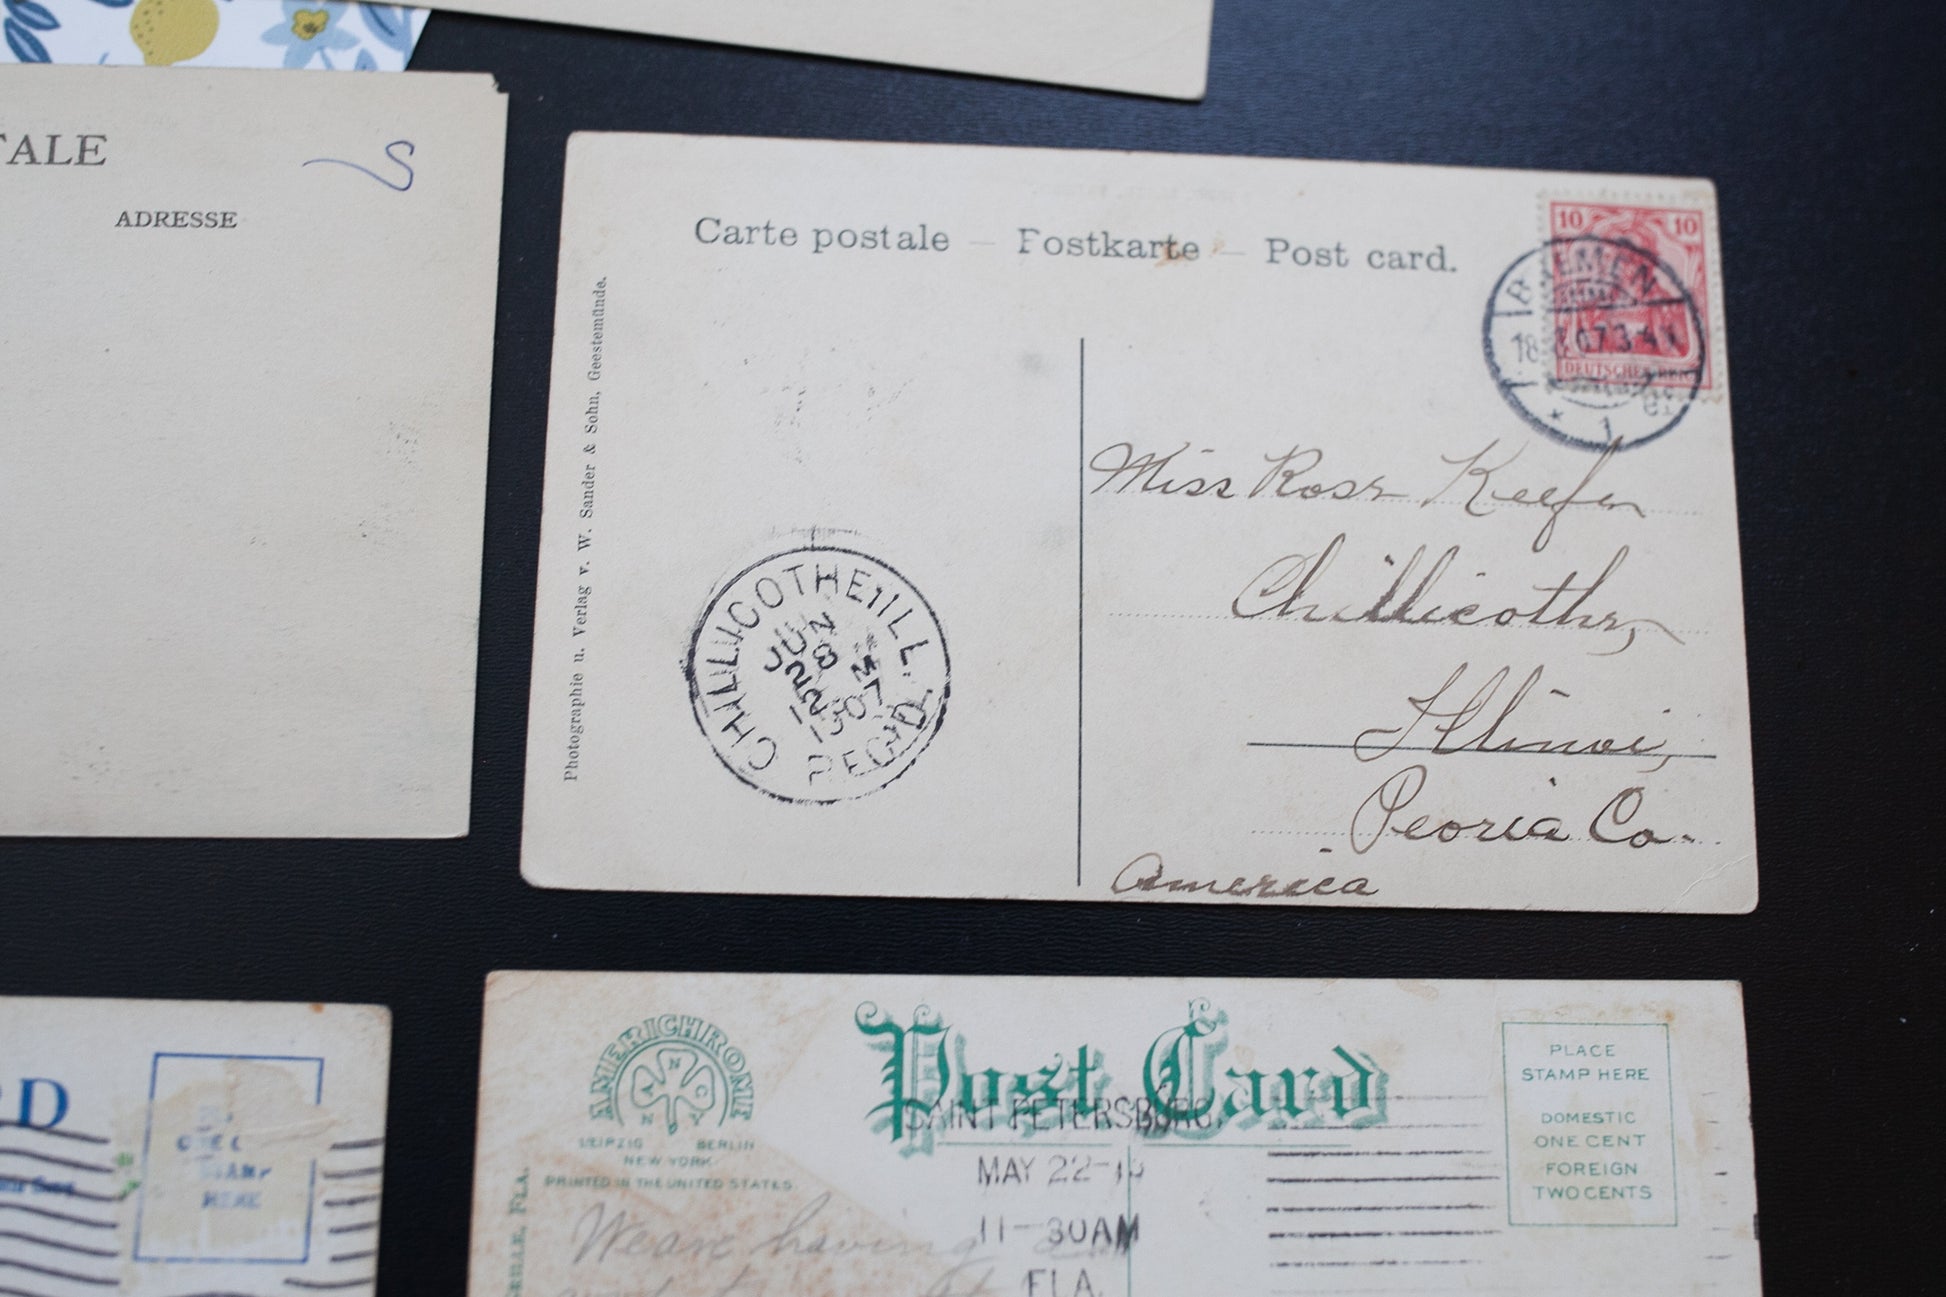 TALE
ADRESSE
Carte postale — Postkarte — Post card.
10 10
DEUTSCHES REICH
BREMEN
18 07 3-4
1
Photographie u. Verlag v. W. Sander & Sohn, Geestemünde.
Miss Rose Keefer
Chillicothe,
Illinois,
Peoria Co.
America
CHILLICOTHE ILL.
JUN
8 M
22
1907
REC'D.
RD
STAMP
HERE
AMERICHROME
LEIPZIG BERLIN
NEW YORK
PRINTED IN THE UNITED STATES
Post Card
SAINT PETERSBURG,
MAY 22
11-30AM
FLA.
PLACE
STAMP HERE
DOMESTIC
ONE CENT
FOREIGN
TWO CENTS
FLA.
We are having